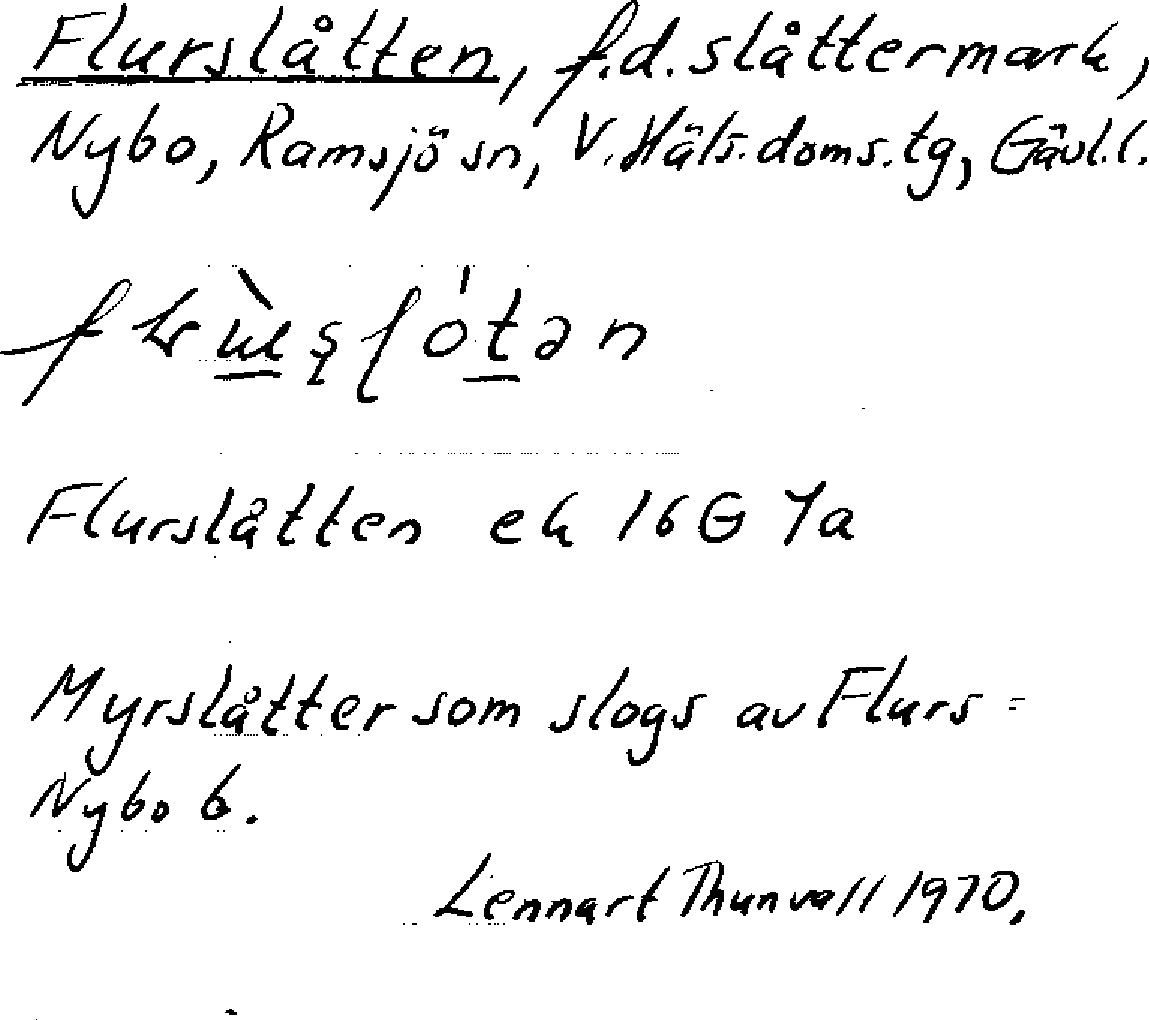 Flurslåtten, f.d. slåttermark,
Nybo, Ramsjö sn, V. Häls. doms. tg, Gävl. l.
Flurslåtten ek 16G 7a
Myrslåtter som slogs av Flurs =
Nybo 6.
Lennart Thunvall 1970.